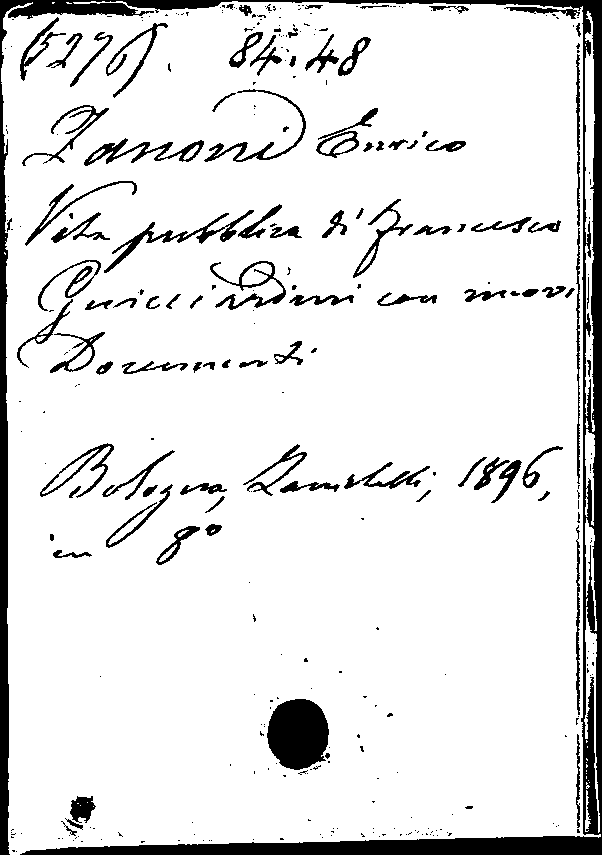 (5276). 84.48
Zanoni Enrico
Vita pubblica di Francesco
Guicciardini con nuovi
Documenti
Bologna, Zanichelli, 1896,
in 8º